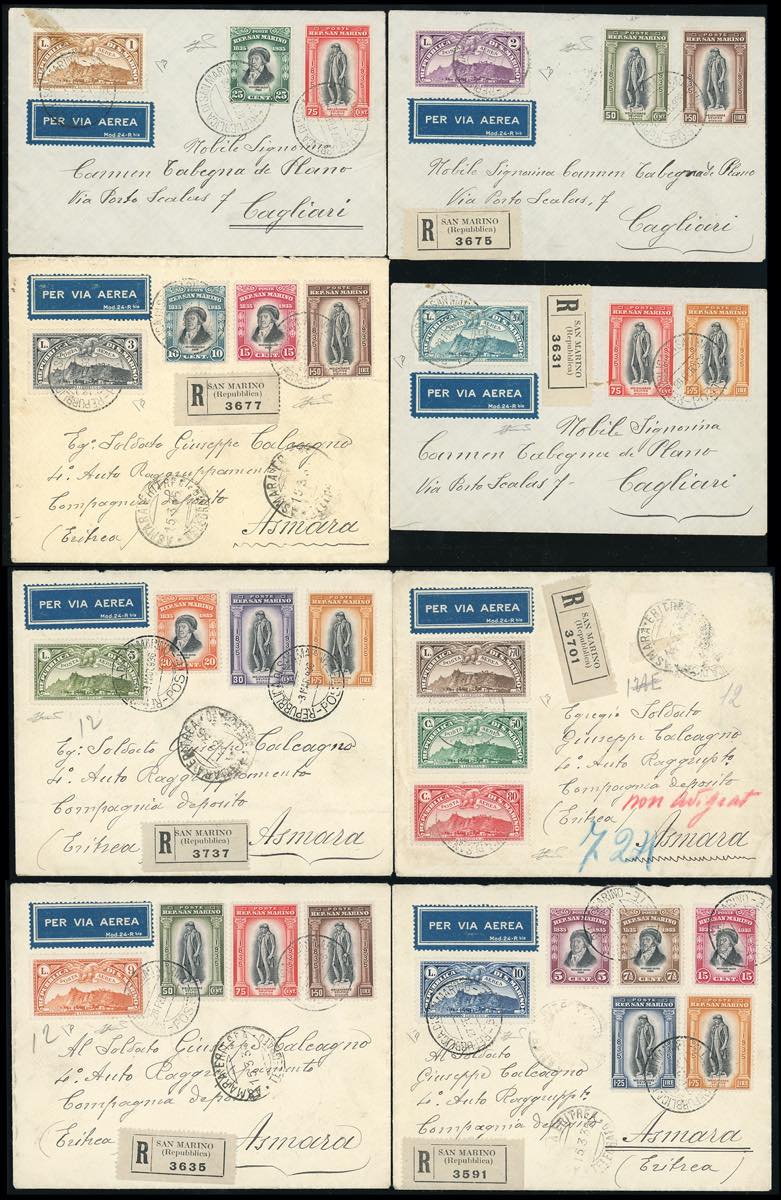 L. 1
POSTA AEREA
REPUBBLICA DI S. MARINO
POSTE
REP. SAN MARINO
1835 1935
25 CENT. 25
POSTE
REP. SAN MARINO
75 CENT.
PER VIA AEREA
Mod. 24-R bis
Nobile Signorina
Carmen Tabegna de Plano
Via Porto Scalas 7
Cagliari
L. 2
POSTA AEREA
REPUBBLICA DI S. MARINO
POSTE
REP. SAN MARINO
50 CENT.
POSTE
REP. SAN MARINO
1·50 LIRE
PER VIA AEREA
Mod. 24-R bis
Nobile Signorina Carmen Tabegna de Plano
Via Porto Scalas, 7
Cagliari
R SAN MARINO
(Repubblica)
3675
PER VIA AEREA
Mod. 24-R bis
L. 3
POSTA AEREA
REPUBBLICA DI S. MARINO
POSTE
REP. SAN MARINO
1835 1935
10 CENT. 10
POSTE
REP. SAN MARINO
1835 1935
15 CENT. 15
POSTE
REP. SAN MARINO
1·50 LIRE
R SAN MARINO
(Repubblica)
3677
Eg. Soldato Giuseppe Calcagno
4° Auto Raggruppamento
Compagnia deposito
(Eritrea) Asmara
POSTA AEREA
REPUBBLICA DI S. MARINO
R SAN MARINO
(Repubblica)
3631
POSTE
REP. SAN MARINO
75 CENT.
POSTE
REP. SAN MARINO
1·75 LIRE
PER VIA AEREA
Mod. 24-R bis
Nobile Signorina
Carmen Tabegna de Plano
Via Porto Scalas-7
Cagliari
PER VIA AEREA
Mod. 24-R bis
L. 5
POSTA AEREA
REPUBBLICA DI S. MARINO
POSTE
REP. SAN MARINO
1835 1935
20 CENT. 20
POSTE
REP. SAN MARINO
30 CENT.
POSTE
REP. SAN MARINO
1·75 LIRE
12
Eg. Soldato Giuseppe Calcagno
4° Auto Raggruppamento
Compagnia deposito
(Eritrea Asmara
R SAN MARINO
(Repubblica)
3737
PER VIA AEREA
Mod. 24-R bis
L. 7.70
POSTA AEREA
REPUBBLICA DI S. MARINO
C. 50
POSTA AEREA
REPUBBLICA DI S. MARINO
C. 80
POSTA AEREA
REPUBBLICA DI S. MARINO
R SAN MARINO
(Repubblica)
3701
12
Egregio Soldato
Giuseppe Calcagno
4° Auto Raggruppto
Compagnia Deposito
(Eritrea
Asmara
PER VIA AEREA
Mod. 24-R bis
L. 9
POSTA AEREA
REPUBBLICA DI S. MARINO
POSTE
REP. SAN MARINO
50 CENT.
POSTE
REP. SAN MARINO
75 CENT.
POSTE
REP. SAN MARINO
1·50 LIRE
12
Al Soldato Giuseppe Calcagno
4° Auto Raggruppamento
Compagnia deposito
(Eritrea Asmara
R SAN MARINO
(Repubblica)
3635
PER VIA AEREA
Mod. 24-R bis
L. 10
POSTA AEREA
REPUBBLICA DI S. MARINO
POSTE
REP. SAN MARINO
1835 1935
5 CENT. 5
POSTE
REP. SAN MARINO
1835 1935
7½ CENT. 7½
POSTE
REP. SAN MARINO
1835 1935
15 CENT. 15
POSTE
REP. SAN MARINO
1·25 LIRE
POSTE
REP. SAN MARINO
1·75 LIRE
Al Soldato
Giuseppe Calcagno
4° Auto Raggruppto
Compagnia deposito
Asmara
(Eritrea)
R SAN MARINO
(Repubblica)
3591